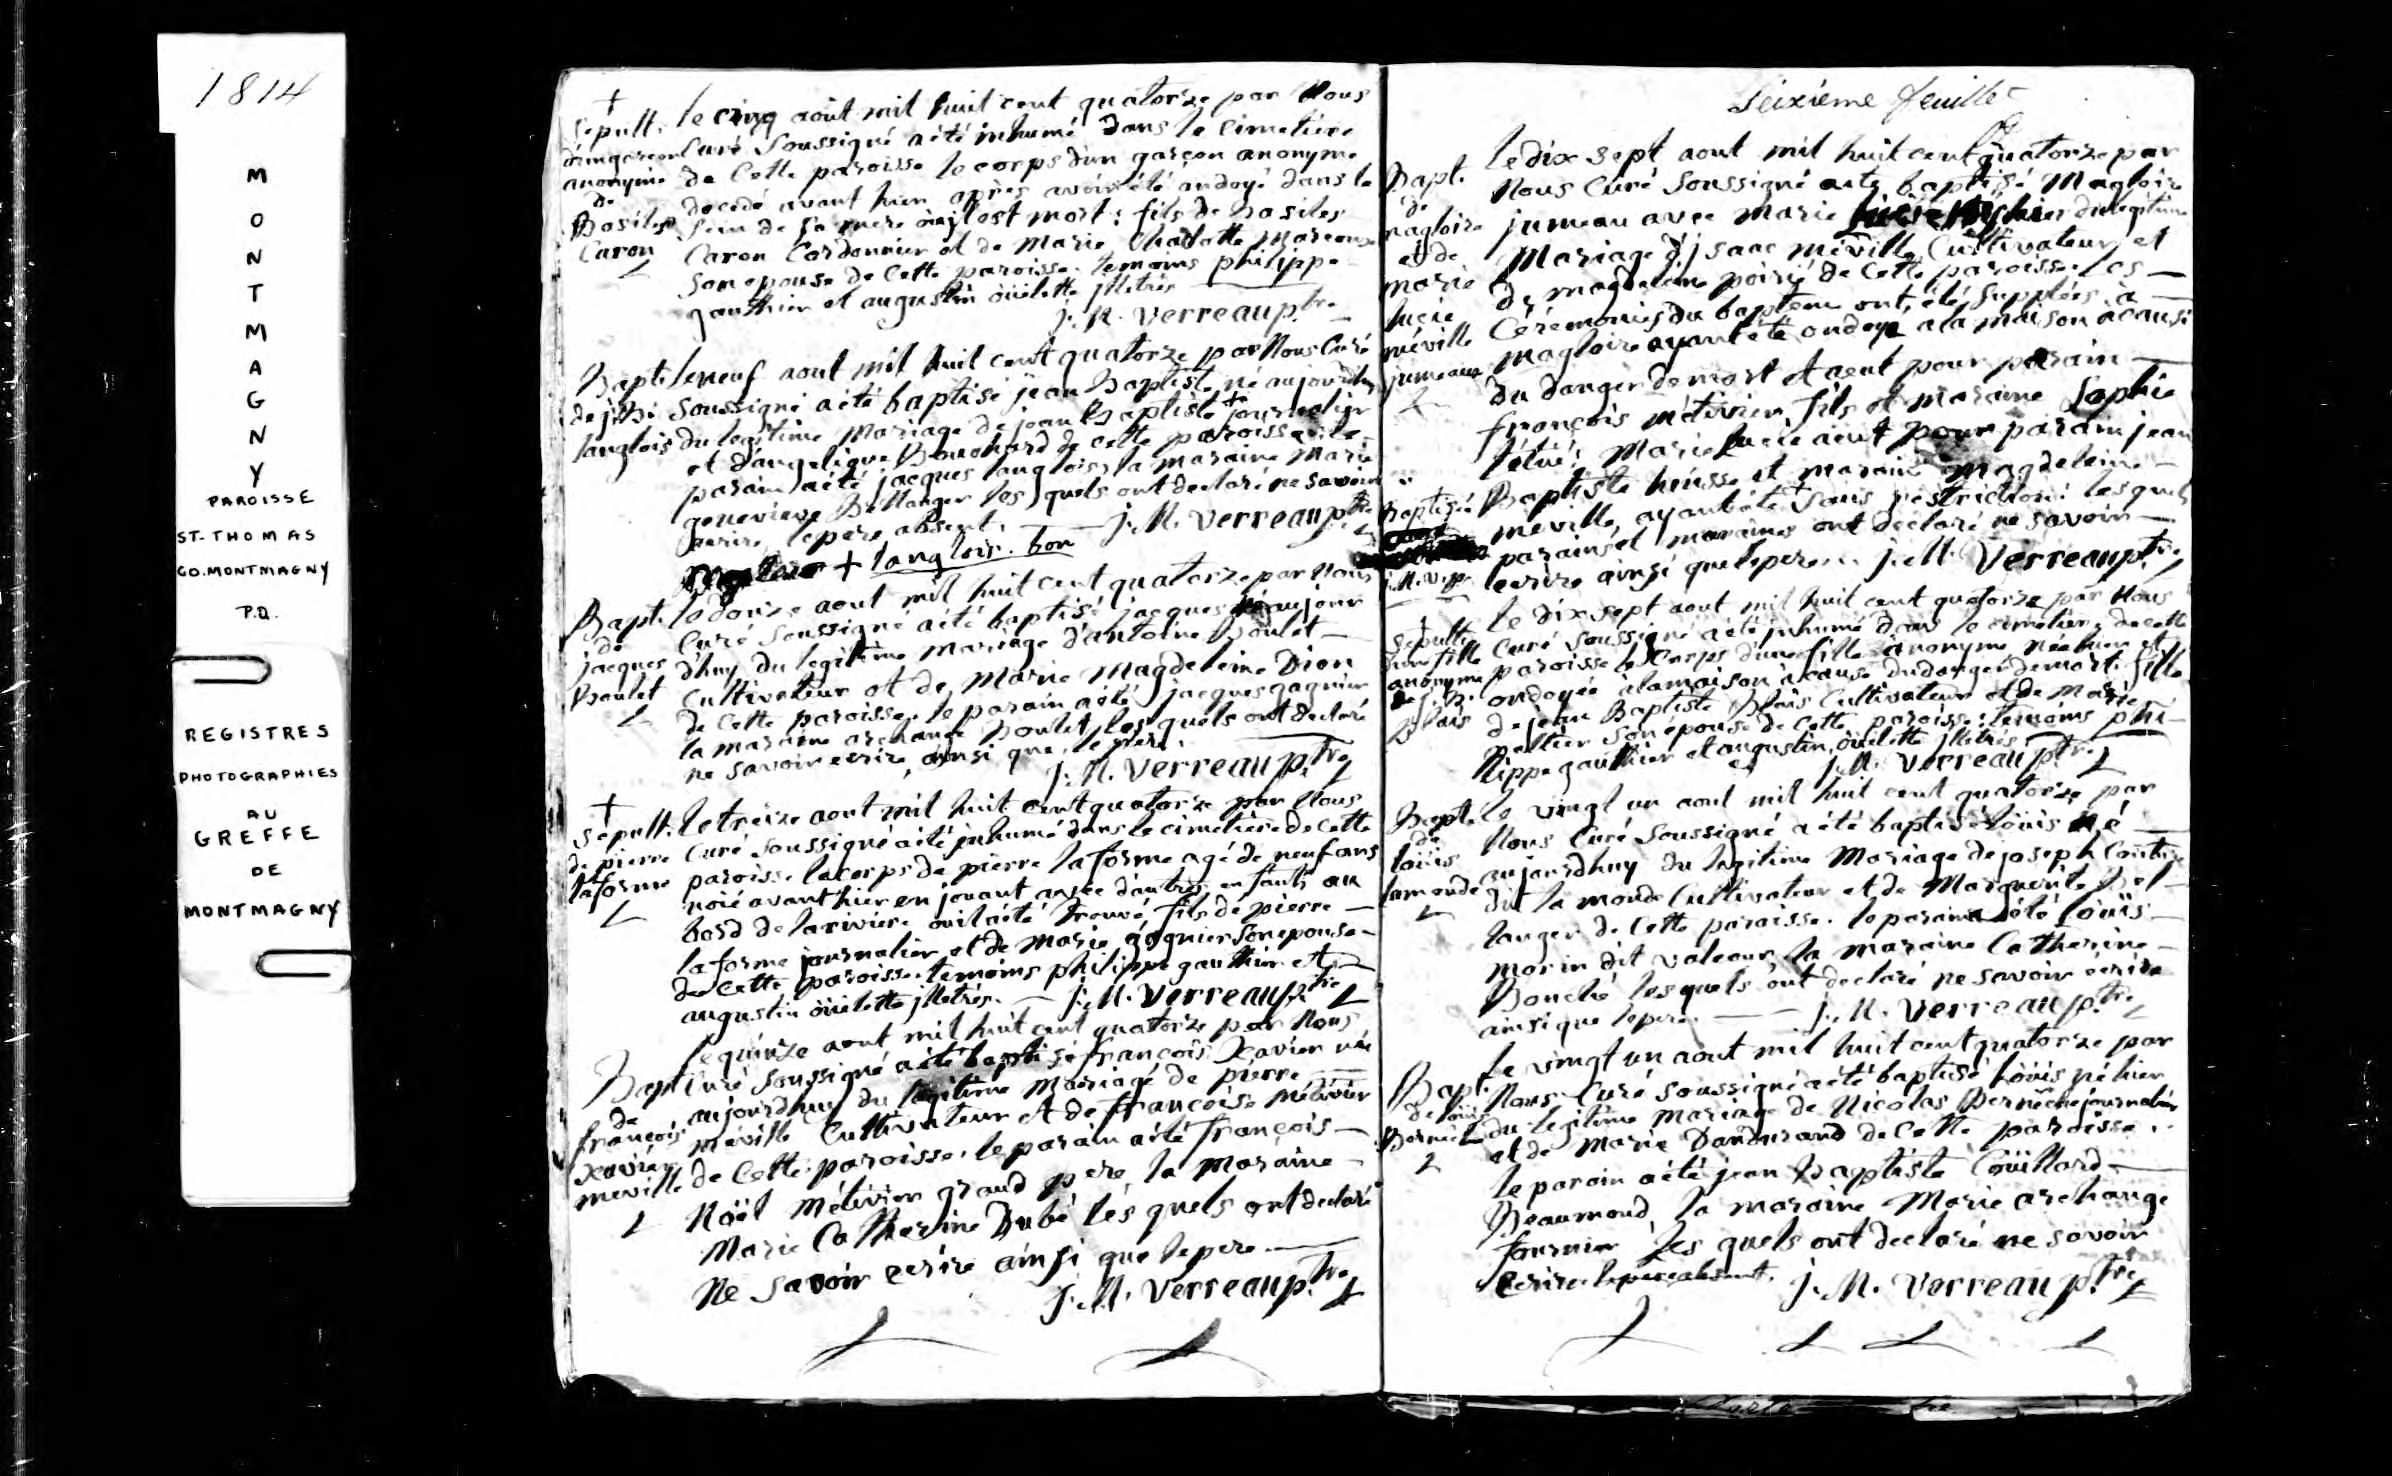 1814
M
O
N
T
M
A
G
N
Y
PAROISSE
ST. THOMAS
CO. MONTMAGNY
P.Q.
REGISTRES
PHOTOGRAPHIES
AU
GREFFE
DE
MONTMAGNY
+
Sepult.
d'un garcon
anonyme
de
Basiles
Caron
le cinq août mil huit cent quatorze par Nous
Curé Soussigné a été inhumé dans le Cimetiere
de Cette paroisse le corps d'un garçon anonyme
decedé avant hier après avoir été ondoyé dans le
sein de sa mere où il est mort: fils de Basiles
Caron Cordonnier et de Marie Charlotte
son epouse de Cette paroisse. temoins philippe
gauthier et augustin öüelette jlletrés
j. M. Verreau ptre
Bapt.
de j. Bi
langlois
le neuf aout mil huit cent quatorze par Nous Curé
Soussigné a été baptisé jean Baptiste né aujourdhuy
du legitime Mariage de jean Baptiste + journalier
et d'angelique Bouchard de cette paroisse: le
parain a été jacques langlois, la maraine Marie
genevieve Bellanger les quels ont declaré ne savoir
ecrire, le pere absent. j. M. Verreau ptre
+ langlois. bon
Bapt.
de
jacques
Boulet
le douze aout mil huit cent quatorze par Nous
Curé Soussigné a été baptisé jacques né aujour
d'huy du legitime mariage d'antoine Boulet
Cultivateur et de Marie Magdeleine Dion
de Cette paroisse. le parain a été jacques gagnier
la maraine archange Boulet les quels ont declaré
ne savoir ecrire ainsi que le pere.
j. M. Verreau ptre
+
Sepult.
de pierre
laforme
le treize aout mil huit cent quatorze par Nous
Curé soussigné a été inhumé dans le cimetiere de cette
paroisse le corps de pierre laforme agé de neuf ans
noié avant hier en jouant avec d'autres enfants au
bord de la riviere ou il a été trouvé, fils de pierre
laforme journalier et de Marie gagnier son epouse
de Cette paroisse. temoins philippe gauthier et
augustin öüelette jlletrés. j. M. Verreau ptre
Bapt.
de
françois
Xavier
meville
le quinze aout mil huit cent quatorze par Nous
Curé Soussigné a été baptisé françois Xavier né
aujourdhuy du legitime Mariage de pierre
méville Cultivateur et de françoise métivier
de Cette paroisse. le parain a été françois
Noël Métivier grand pere la Maraine
Marie Catherine Dubé les quels ont declaré
Ne Savoir ecrire ainsi que le pere
j. M. Verreau ptre
Seixième feuillet
Bapt.
de
magloire
et de
marie
lucie
méville
jumeaux
le dix sept aout mil huit cent quatorze par
Nous Curé Soussigné a été baptisé Magloire
jumeau avec Marie Lucie du legitime
Mariage d'jsaac méville Cultivateur et
de magdeleine poirié de Cette paroisse. les
Cérémonies du baptême ont été Supplées à
magloire ayant été ondoyé a la maison a cause
du danger de mort et a eut pour parain
françois métivier fils et maraine Sophie
Marie Lucie a eut pour parain jean
Baptiste et maraine Magdeleine
meville, ayant été + sans restriction: les quels
parains et maraines ont declaré ne savoir
ecrire ainsi que le pere. j. M. Verreau ptre
+ baptisé
j. M. V. p
+
Sepult.
d'une fille
anonyme
de j. B.
Blais
le dix sept aout mil huit cent quatorze par Nous
Curé Soussigné a été inhumé dans le cimetiere de cette
paroisse le Corps d'une fille anonyme Née hier et
ondoyée à la maison à cause du danger de mort. fille
de jean Baptiste Blais Cultivateur et de Marie
peltier son épouse de Cette paroisse: temoins phi-
lippe gauthier et augustin öüelette jlletrés
j. M. Verreau ptre
Bapt.
de
loüis
lamonde
le vingt un aout mil huit cent quatorze par
Nous Curé Soussigné a été baptisé loüis né
aujourdhuy du legitime Mariage de joseph
dit la monde Cultivateur et de Marguerite Bel-
langer de Cette paroisse. le parain a été loüis
morin dit valcour, la maraine Catherine
Bouché les quels ont declaré ne savoir écrire
ainsi que le pere. j. M. Verreau ptre
Bapt.
de loüis
le vingt un aout mil huit cent quatorze par
Nous Curé soussigné a été baptisé loüis né hier
du legitime mariage de Nicolas Bernèche journalier
et de Marie Dandurand de Cette paroisse.
le parain a été jean Baptiste Coüillard
Beaumond la maraine Marie archange
fournier les quels ont declaré ne savoir
ecrire. le pere absent. j. M. Verreau ptre